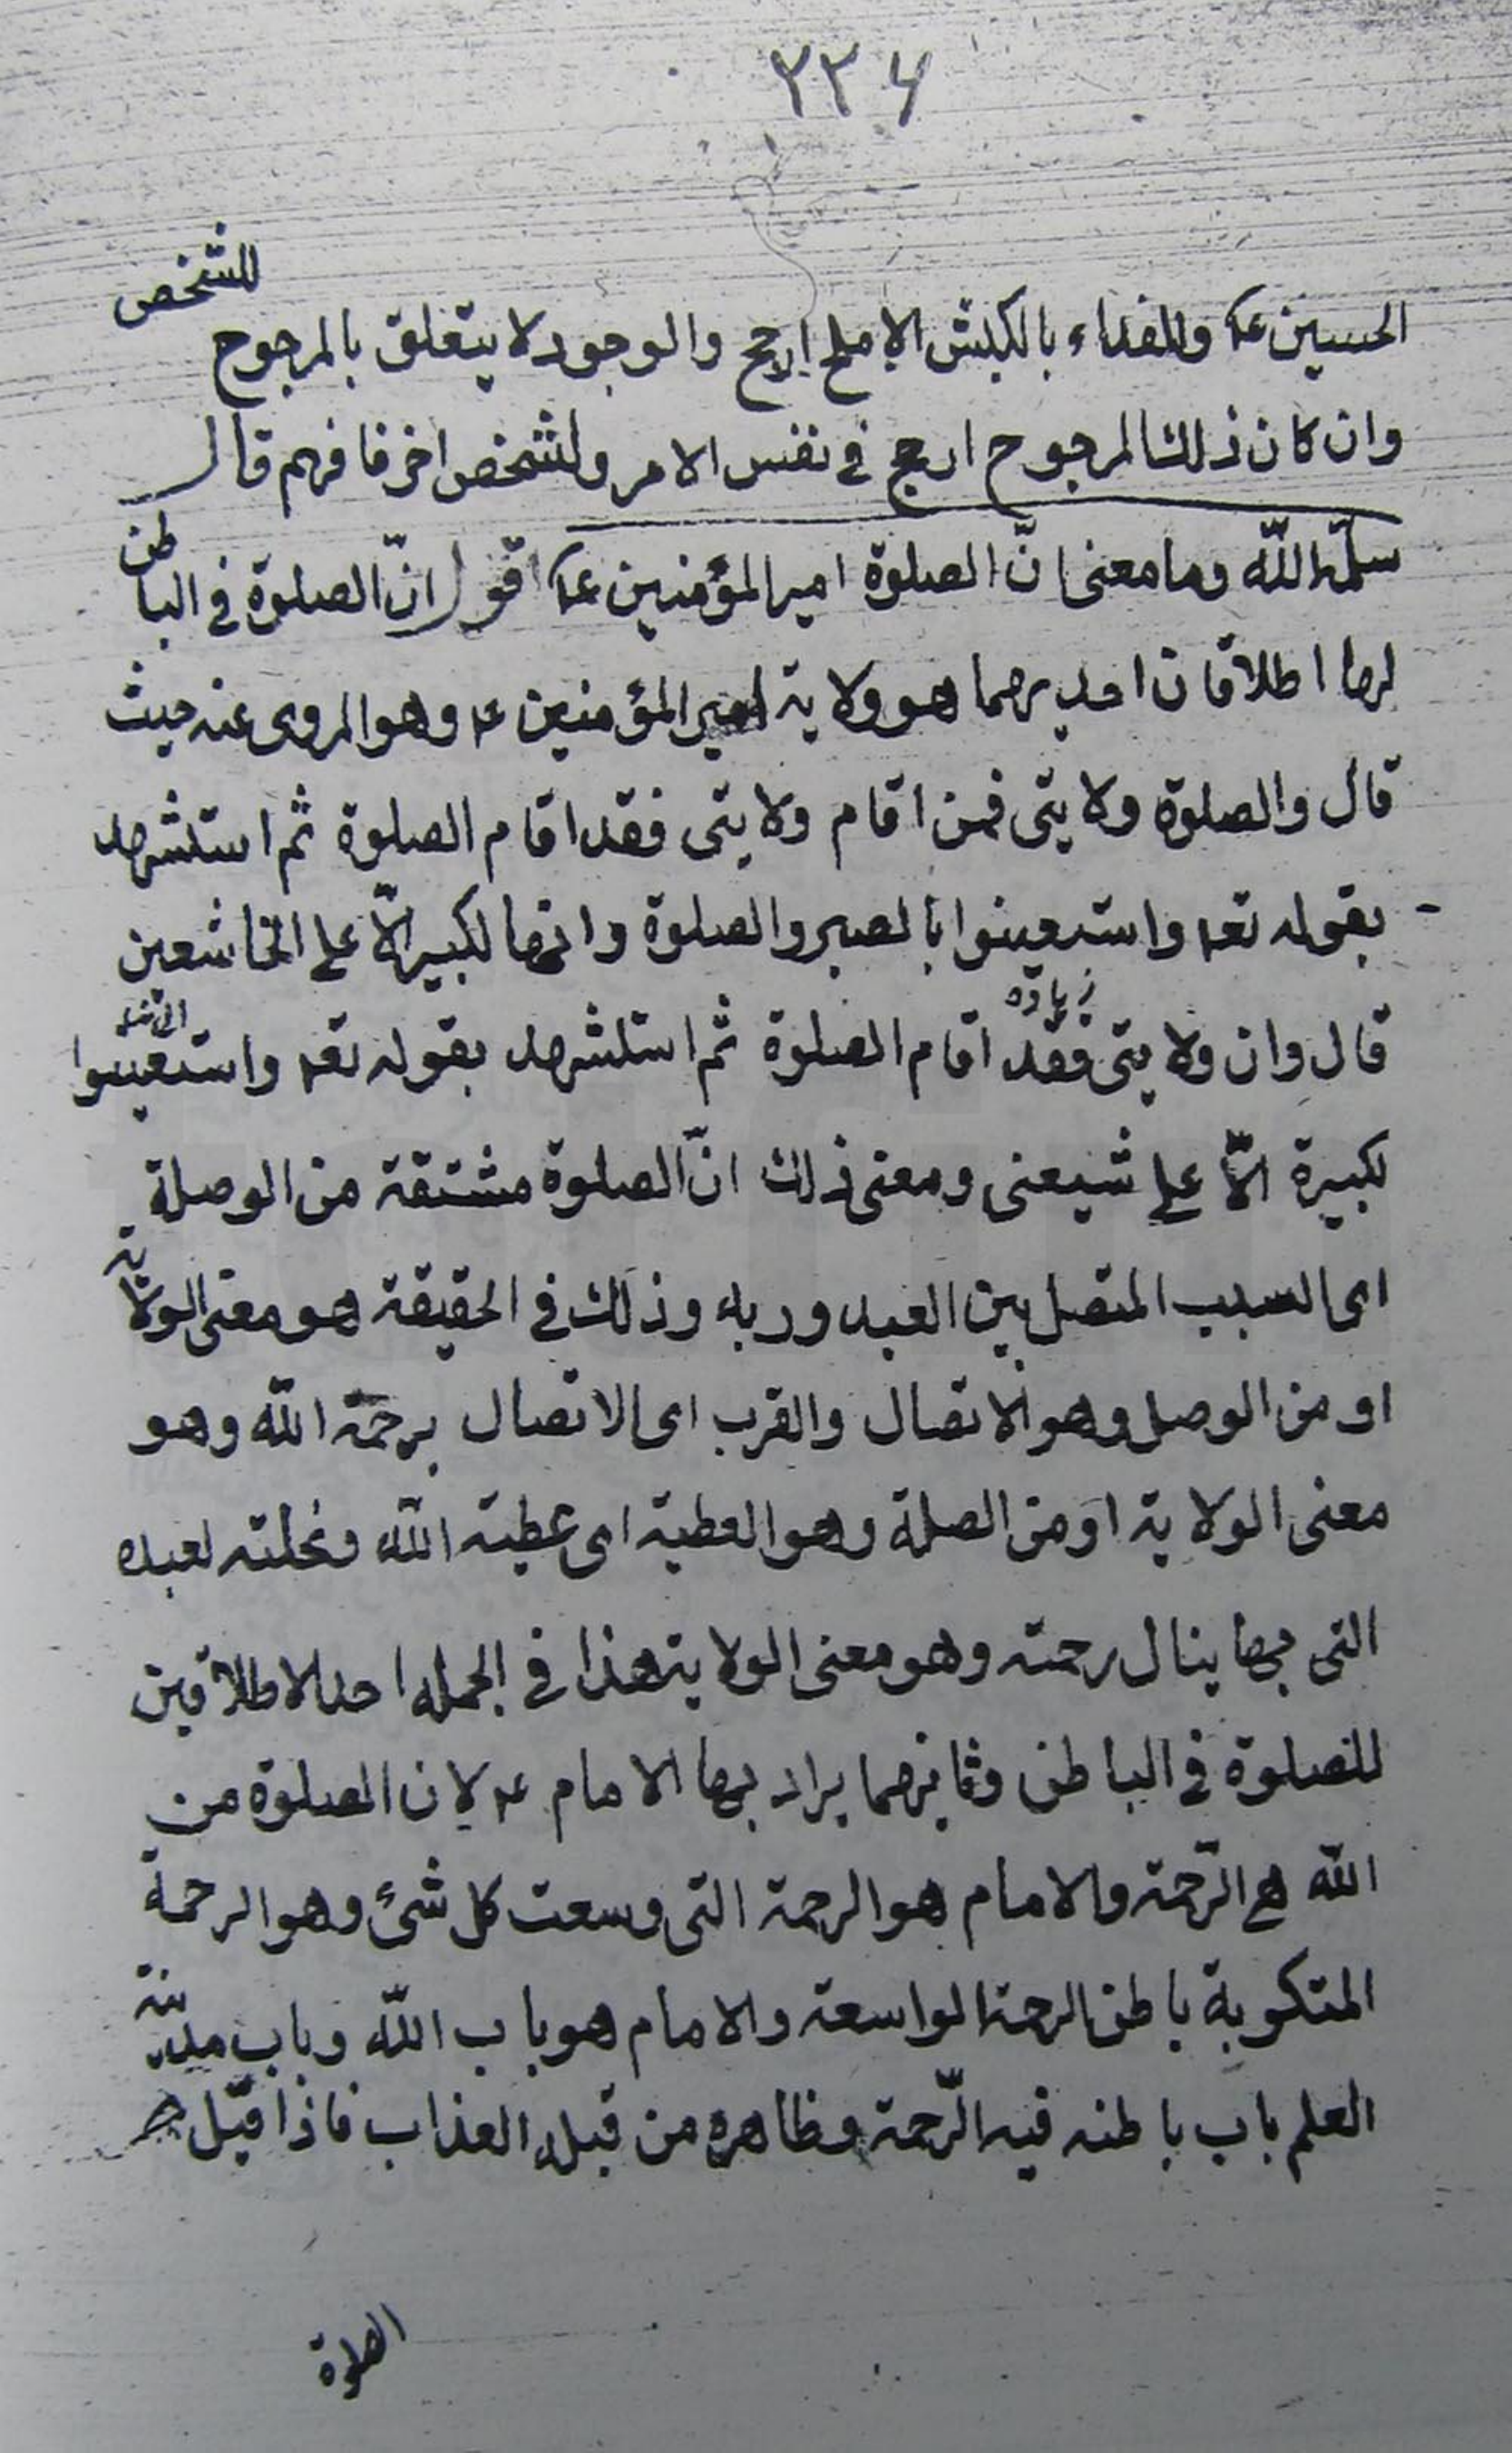 ٢٣٤
الحسين ع والفداء بالكبش الاملح ارجح والوجود لا يتعلق بالمرجوح للشخص
وان كان ذلك المرجوح ارجح في نفس الامر ولشخص اخر فافهم قال
سلمه الله وما معنى انّ الصلوة امير المؤمنين ع اقول انّ الصلوة في الباطن
لها اطلاقان احديهما هو ولاية امير المؤمنين ع وهو المروى عنه حيث
قال والصلوة ولايتى فمن اقام ولايتى فقد اقام الصلوة ثم استشهد
بقوله تع واستعينوا بالصبر والصلوة وانها لكبيرة الّا على الخاشعين
قال وان ولايتى فقد زيادة اقام الصلوة ثم استشهد بقوله تع واستعينوا
لكبيرة الّا على شيعتى ومعنى ذلك انّ الصلوة مشتقة من الوصلة
اى السبب المتصل بين العبد وربه وذلك في الحقيقة هو معنى الولاية
او من الوصل وهو الاتصال والقرب اى الاتصال برحمة الله وهو
معنى الولاية او من الصلة وهو العطية اى عطية الله ونحلته لعبده
التى بها ينال رحمته وهو معنى الولاية هذا في الجملة احد الاطلاقين
للصلوة في الباطن وثانيهما يراد بها الامام ع لان الصلوة من
الله هي الرّحمة والامام هو الرحمة التى وسعت كل شئ وهو الرحمة
المتكوبة باطن الرحمة الواسعة والامام هو باب الله وباب مدينة
العلم باب باطنه فيه الرّحمة وظاهره من قبله العذاب فاذا قيل
الصلوة